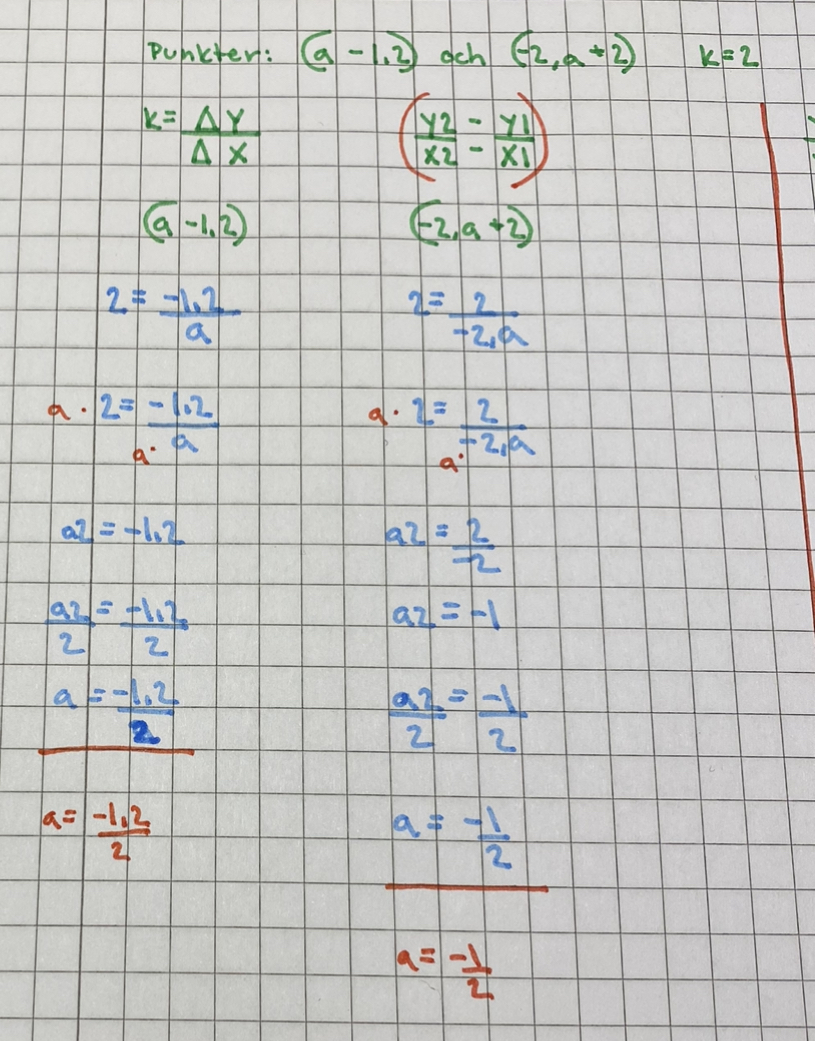 Punkter: (a -1,2) och (-2, a +2) K=2
K= ΔY / Δ X (Y2 - Y1 / X2 - X1)
(a -1,2) (-2, a +2)
2 = -1,2 / a 2 = 2 / -2,a
a · 2 = -1,2 / a· a a · 2 = 2 / a· -2,a
a2 = -1,2 a2 = 2 / -2
a2 / 2 = -1,2 / 2 a2 = -1
a = -1,2 / 2 a2 / 2 = -1 / 2
a = -1,2 / 2 a = -1 / 2
a = -1 / 2